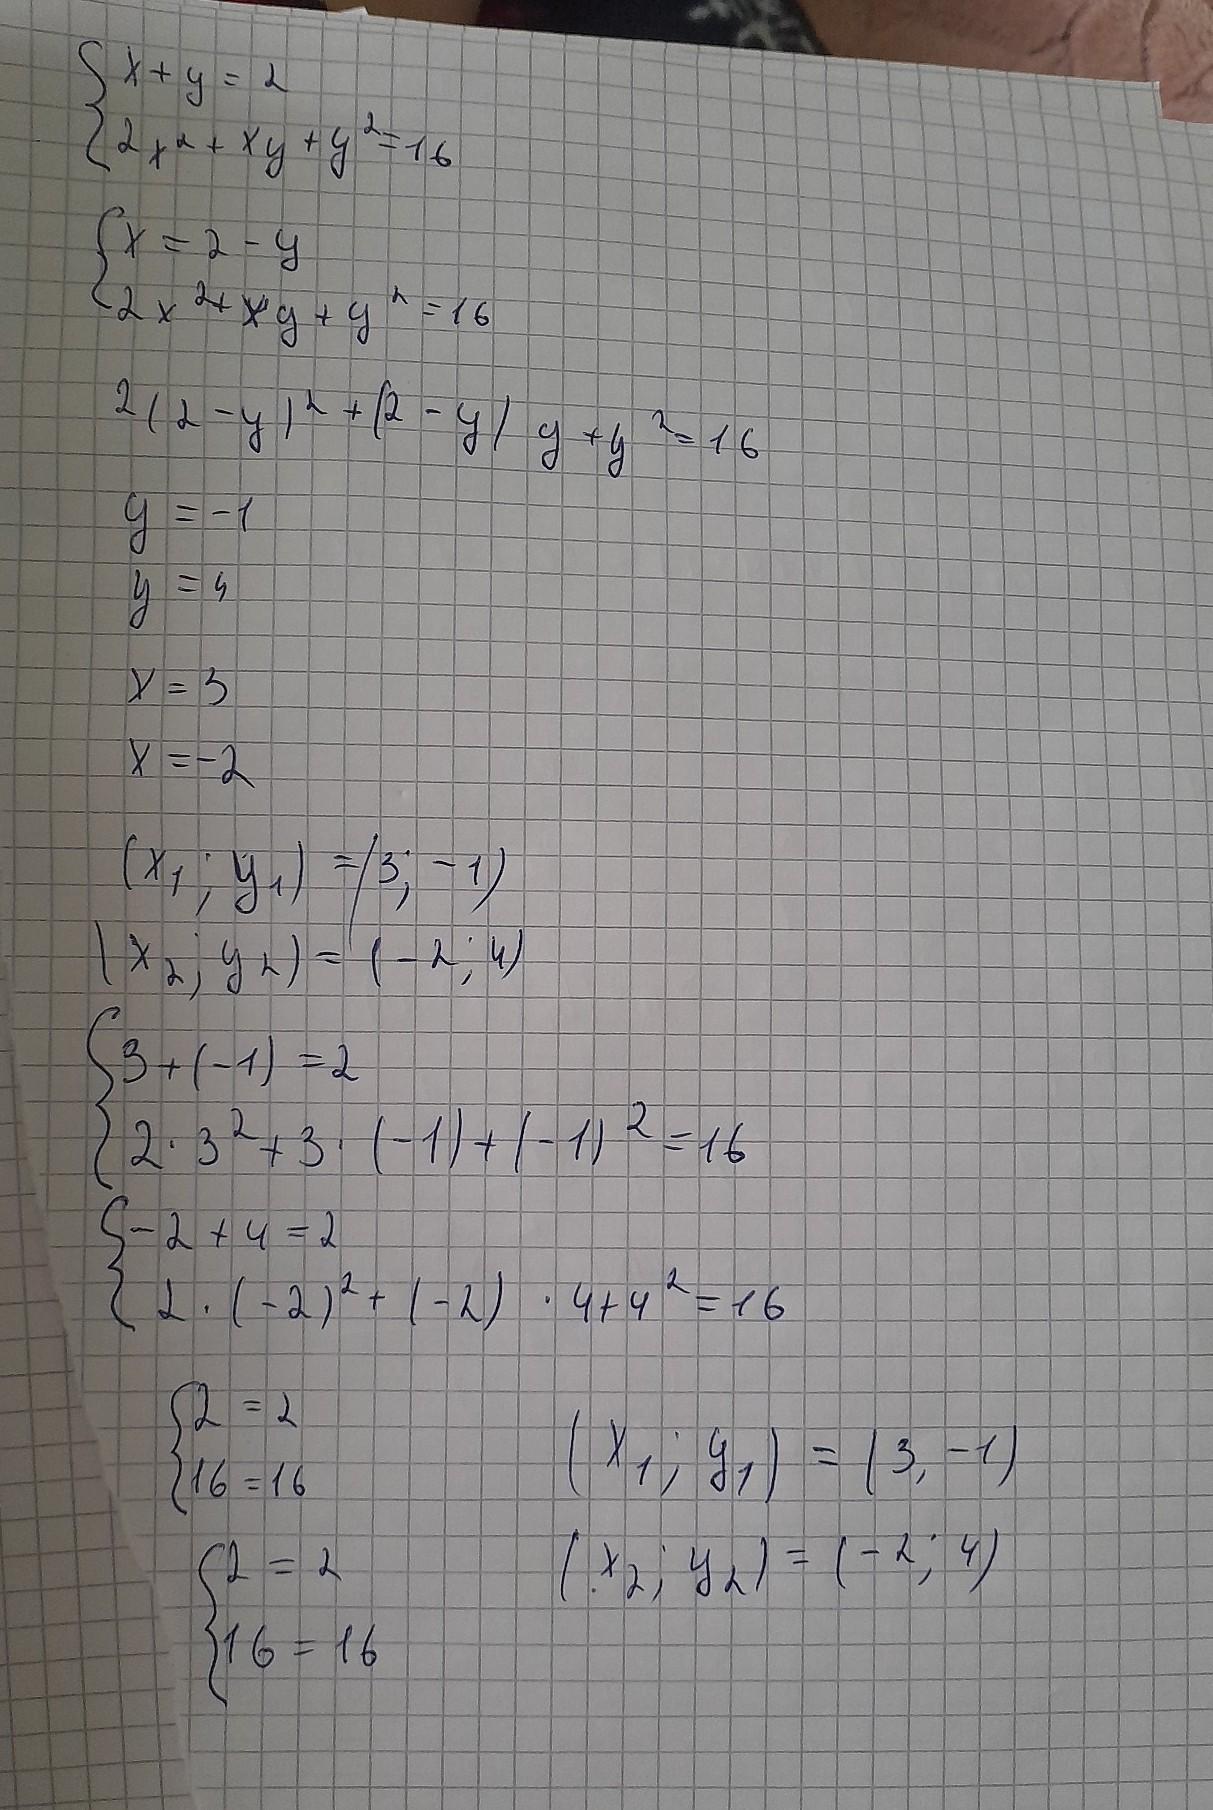 {x+y=2
{2x²+xy+y²=16
{x=2-y
{2x²+xy+y²=16
2(2-y)²+(2-y)y+y²=16
y=-1
y=4
x=3
x=-2
(x₁;y₁)=(3;-1)
(x₂;y₂)=(-2;4)
{3+(-1)=2
{2·3²+3·(-1)+(-1)²=16
{-2+4=2
{2·(-2)²+(-2)·4+4²=16
{2=2
{16=16
(x₁;y₁)=(3,-1)
{2=2
{16=16
(x₂;y₂)=(-2;4)